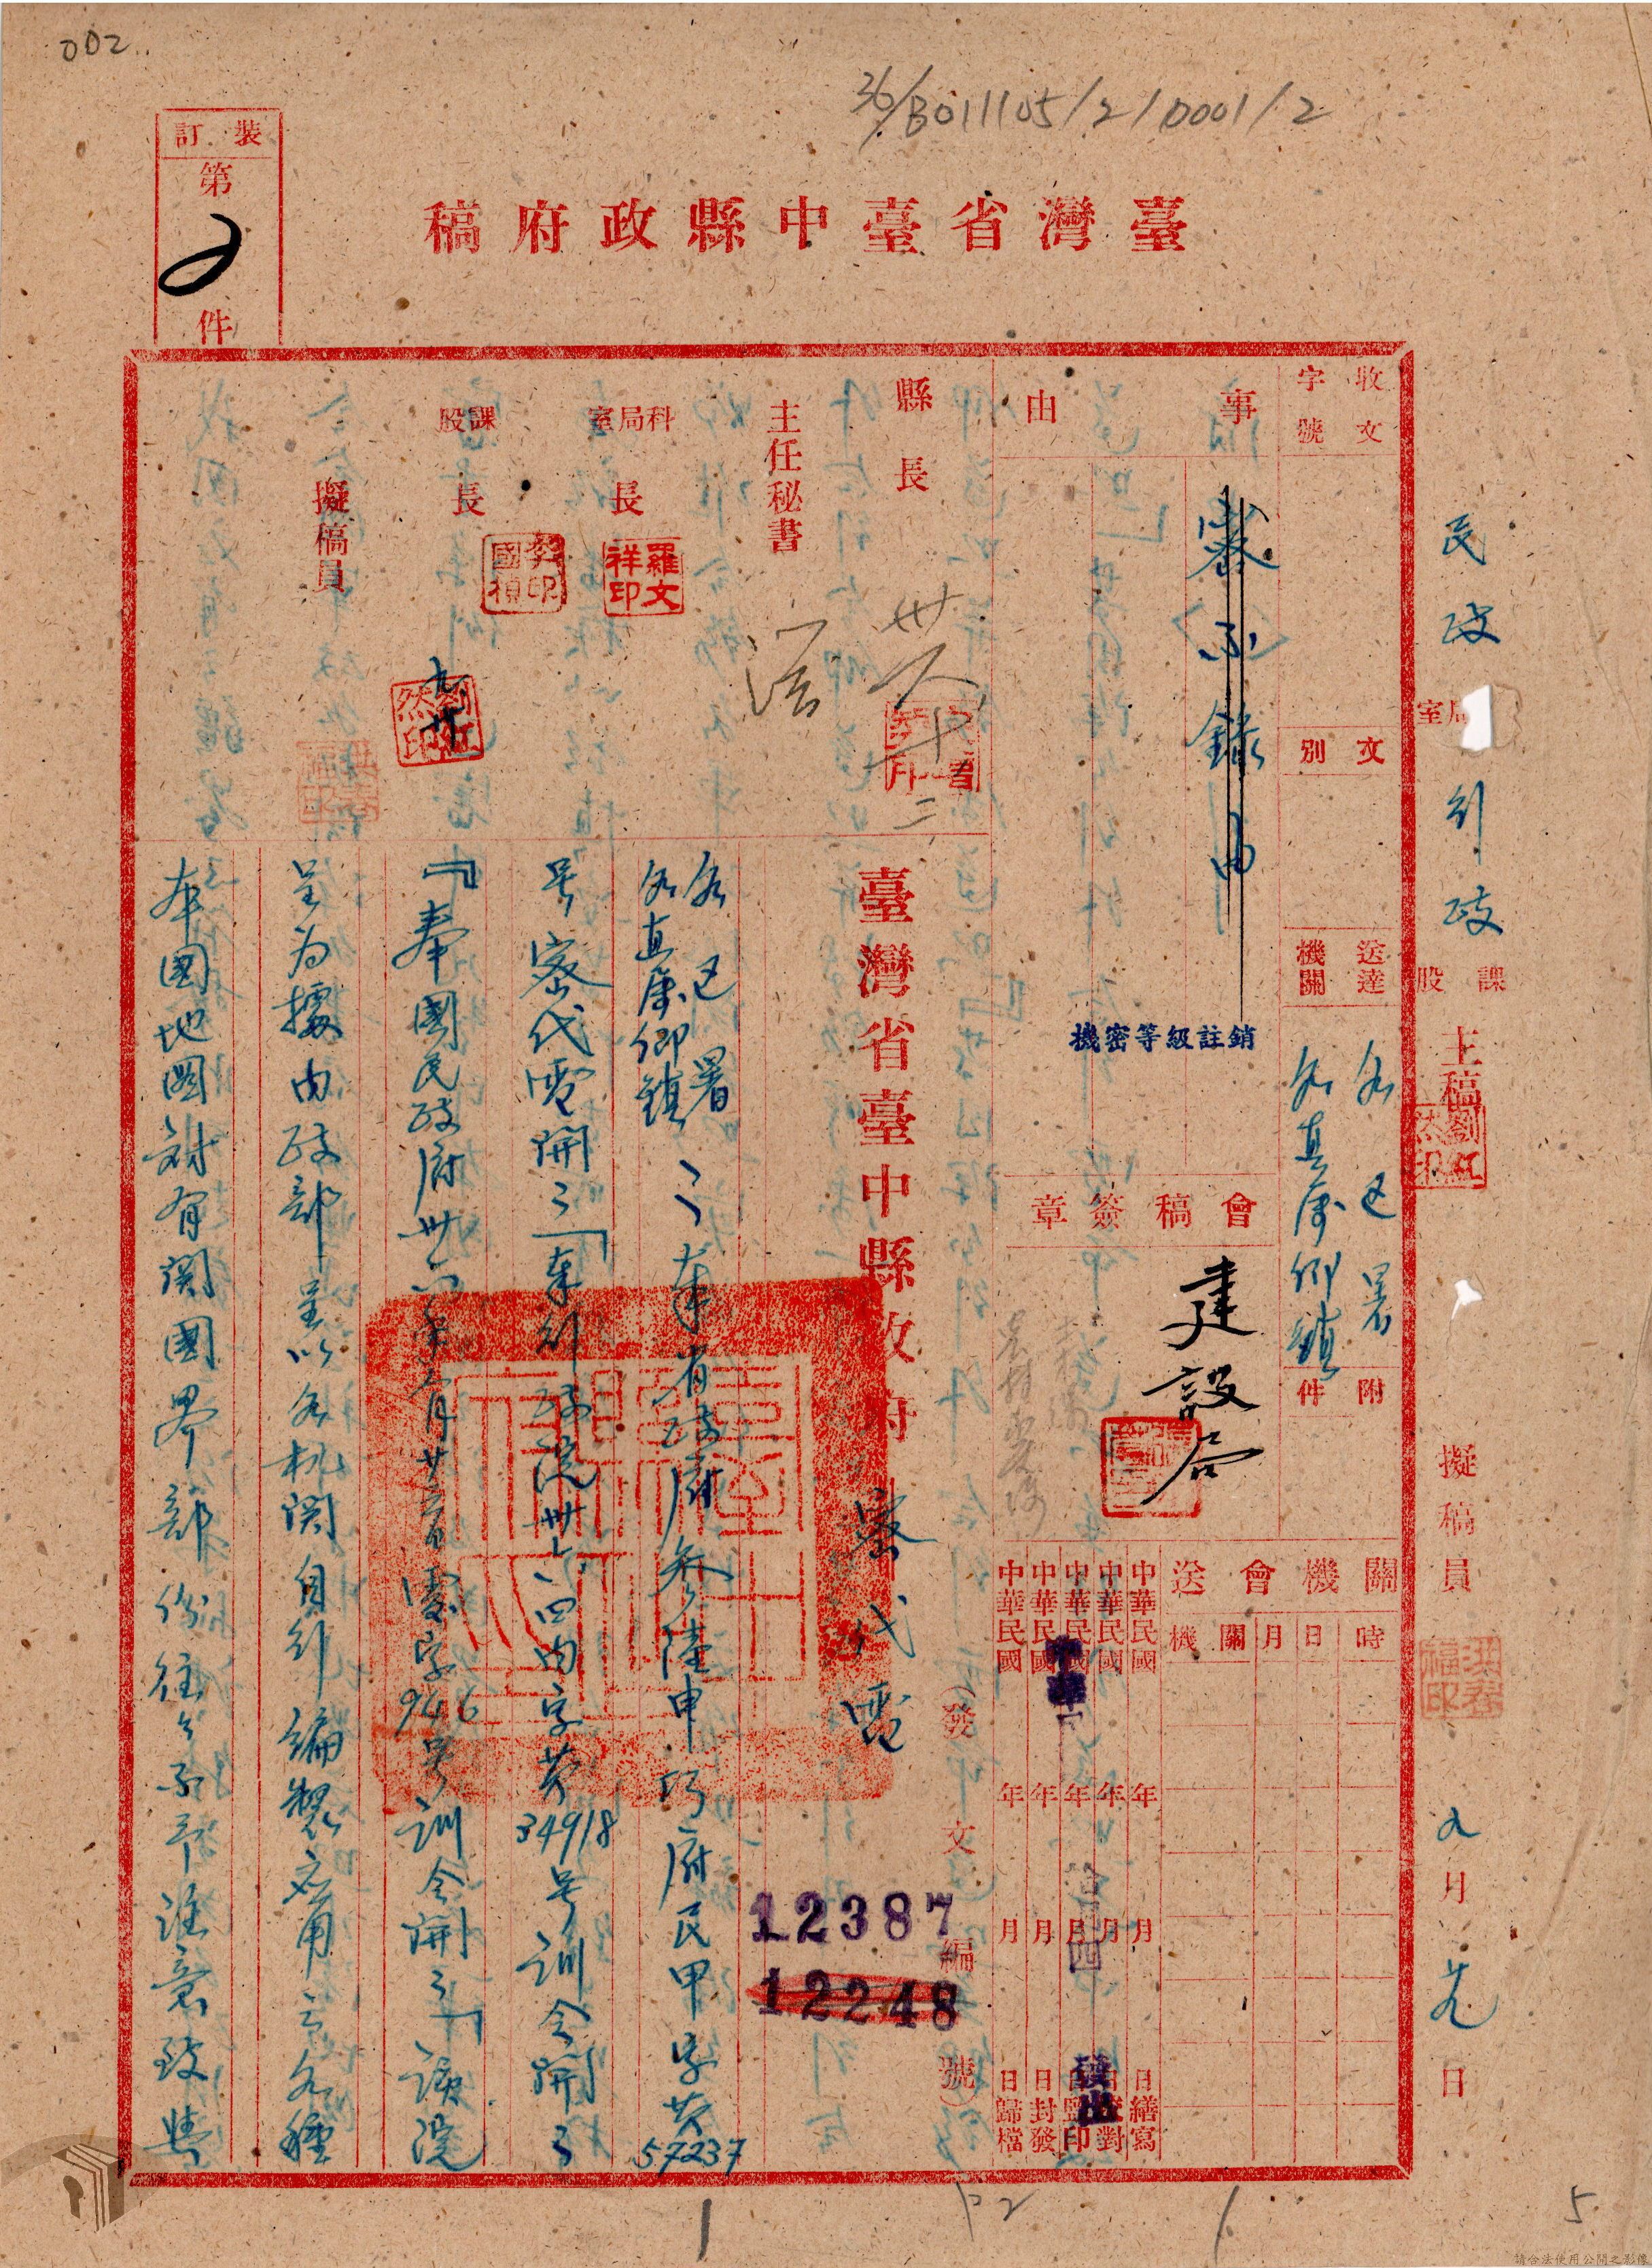 002
36/B011105/2/0001/2
裝訂
第
2
件
臺灣省臺中縣政府稿
民政局室行政課股主稿
擬稿員
九月廿九日
收文
字號
文別
送達機關
各區署
各直屬鄉鎮
附件
事由
密不錄由
機密等級註銷
會稿簽章
建設局
關機會送
時日月關機
中華民國年月日繕寫
中華民國年月日校對
中華民國年月日監印
中華民國年月日封發
中華民國年月日歸檔
發出
縣長
主任秘書
科局室長
羅文祥印
課股長
李國楨印
劉紅然印
擬稿員
洪春福印
臺灣省臺中縣政府 密代電
(發文編號)
12387
12248
各區署
各直屬鄉鎮:奉省政府叁陸申巧府民甲字第57237
号密代電開:「奉行政院卅六四內字第34918号訓令開:
『奉國民政府卅六年六月廿六日處字946号訓令開:「該院
呈為據內政部呈以各机関自行編製应用之各種
本國地圖对有関國界部份往々不予注意致與
P2
5
請合法使用公開之影像